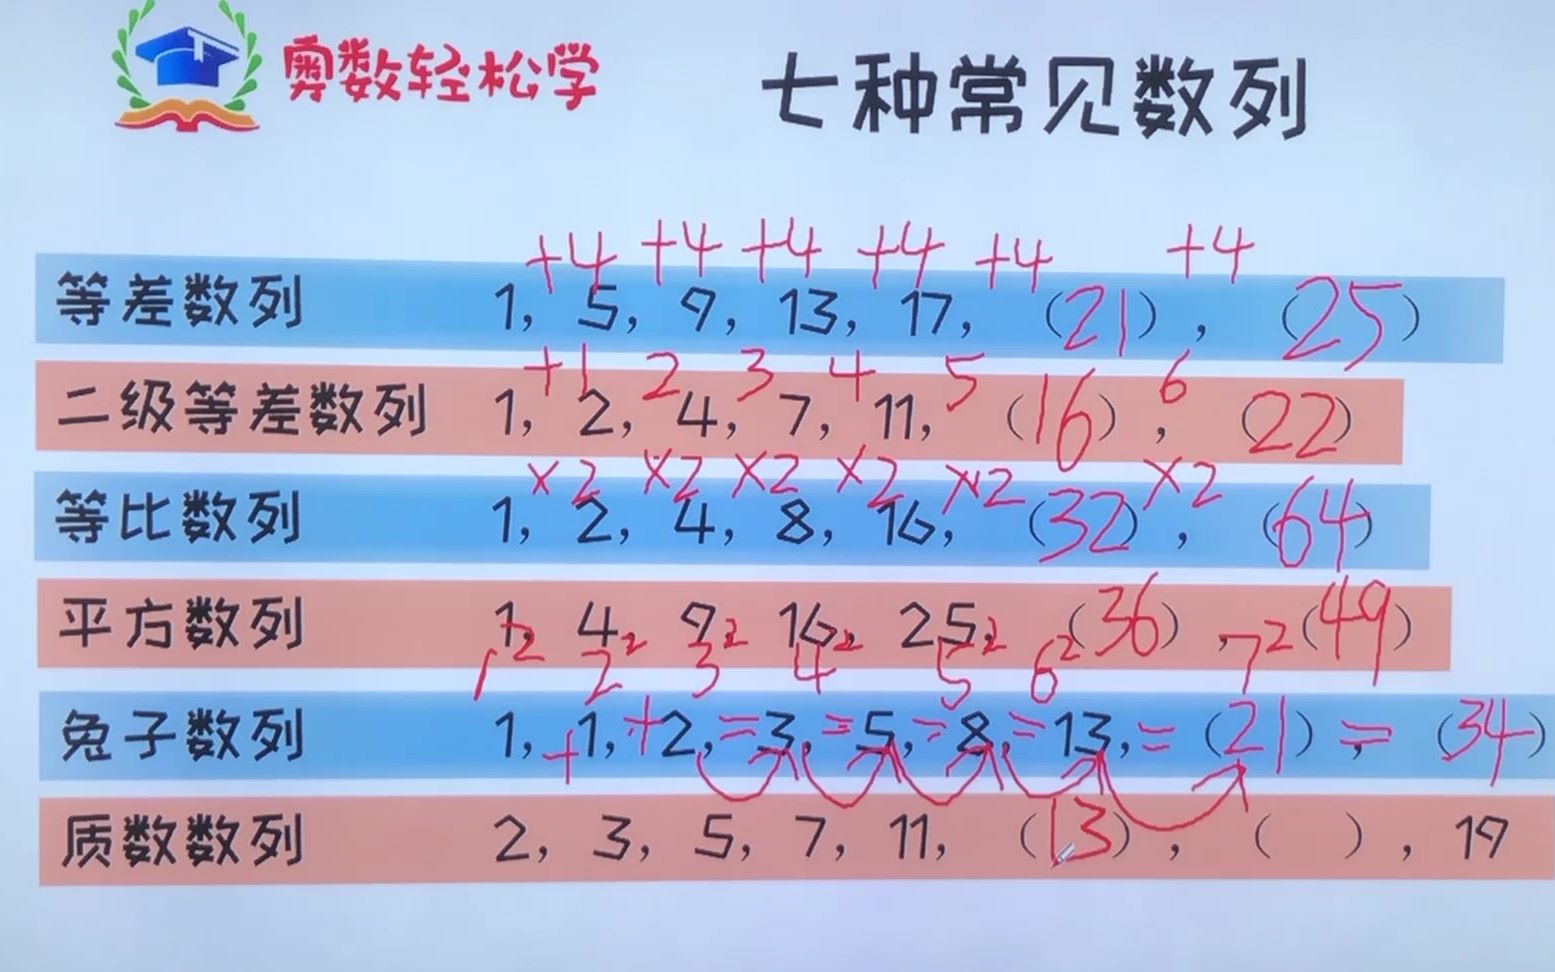 奥数轻松学
七种常见数列
+4 +4 +4 +4 +4 +4
等差数列 1, 5, 9, 13, 17, (21), (25)
+1 2 3 4 5 6
二级等差数列 1, 2, 4, 7, 11, (16), (22)
×2 ×2 ×2 ×2 ×2 ×2
等比数列 1, 2, 4, 8, 16, (32), (64)
平方数列 1, 4, 9, 16, 25, (36), (49)
1² 2² 3² 4² 5² 6² 7²
兔子数列 1, + 1, + 2, = 3, = 5, = 8, = 13, = (21), = (34)
质数数列 2, 3, 5, 7, 11, (13), ( ), 19